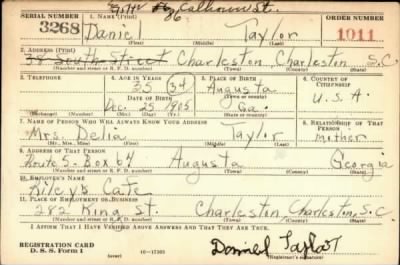 86 Calhoun St.
SERIAL NUMBER 1. NAME (Print) ORDER NUMBER
3268 Daniel Taylor 1011
(First) (Middle) (Last)
2. ADDRESS (Print)
38 South Street Charleston Charleston S.C.
(Number and street or R. F. D. number) (Town) (County) (State)
3. TELEPHONE 4. AGE IN YEARS 5. PLACE OF BIRTH 6. COUNTRY OF CITIZENSHIP
35 (34) Augusta
DATE OF BIRTH (Town or county)
Dec. 25 1905 Ga. U.S.A.
(Exchange) (Number) (Mo.) (Day) (Yr.) (State or country)
7. NAME OF PERSON WHO WILL ALWAYS KNOW YOUR ADDRESS 8. RELATIONSHIP OF THAT PERSON
Mrs. Delia Taylor mother
(Mr., Mrs., Miss) (First) (Middle) (Last)
9. ADDRESS OF THAT PERSON
Route 5-Box 64 Augusta Georgia
(Number and street or R. F. D. number) (Town) (County) (State)
10. EMPLOYER'S NAME
Riley's Cafe
11. PLACE OF EMPLOYMENT OR BUSINESS
282 King St. Charleston Charleston, S.C.
(Number and street or R. F. D. number) (Town) (County) (State)
I AFFIRM THAT I HAVE VERIFIED ABOVE ANSWERS AND THAT THEY ARE TRUE.
REGISTRATION CARD
D. S. S. Form 1 16—17105
(over) (Registrant's signature)